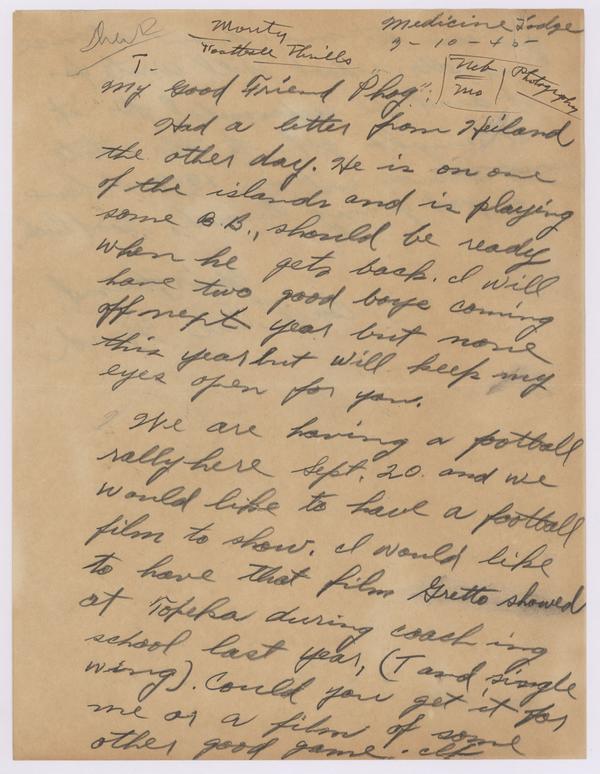 Monty
Football Thrills
Medicine Lodge
9-10-45
T-
Neb
Mo
Photography
My Good Friend "Phog":
Had a letter from Heiland
the other day. He is on one
of the islands and is playing
some B.B., should be ready
when he gets back. I will
have two good boys coming
off next year but none
this year but will keep my
eyes open for you.
We are having a football
rally here Sept. 20 and we
would like to have a football
film to show. I would like
to have that film Gretto showed
at Topeka during coaching
school last year, (T and single
wing). Could you get it for
me or a film of some
other good game. If